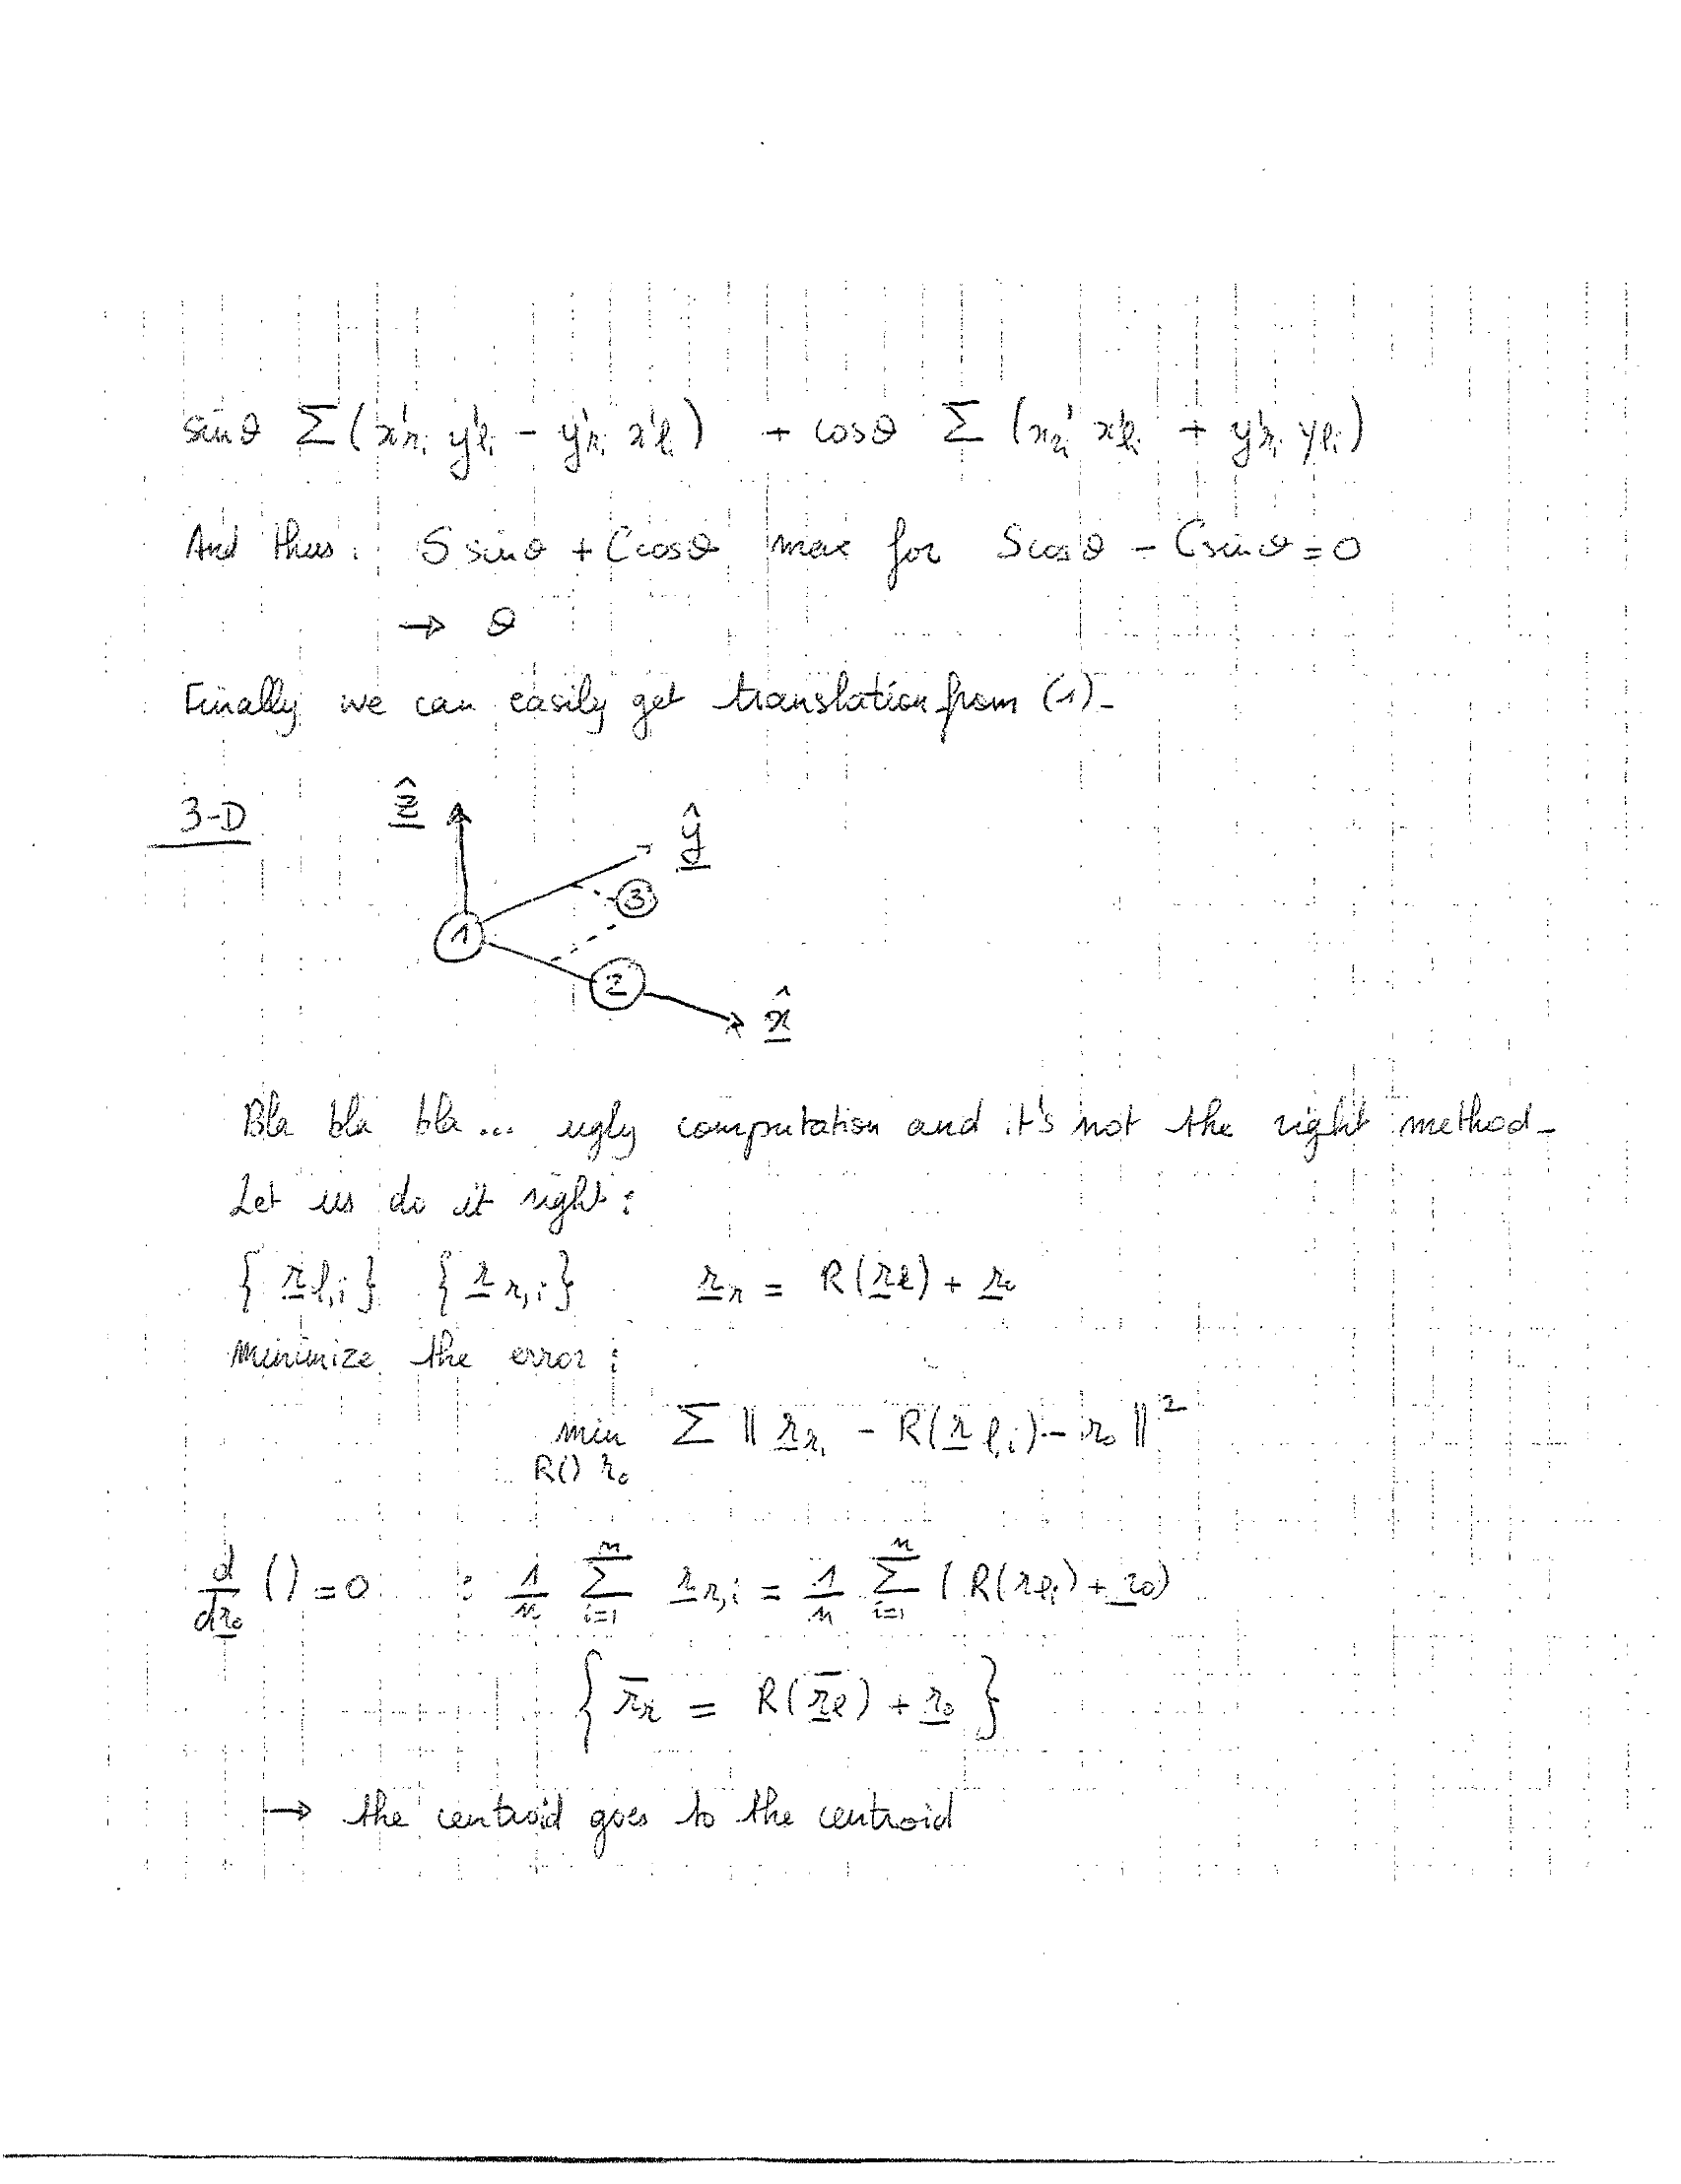 sinθ Σ(x'ri y'li - y'ri x'li) + cosθ Σ (xri' x'li + y'ri yli)
And thus: S sinθ + C cosθ max for S cosθ - C sinθ = 0
→ θ
Finally we can easily get translation from (1)-
3-D ẑ ŷ
3
1
2
x̂
Bla bla bla... ugly computation and it's not the right method-
Let us do it right:
{ r l,i } { r r,i } r r = R(r l) + r₀
minimize the error:
min Σ || r ri - R(r l,i) - r₀ ||²
R() r₀
d/dr₀ () = 0 : 1/n Σ_{i=1}^{n} r r,i = 1/n Σ_{i=1}^{n} (R(r li) + r₀)
{ r̄r = R(r̄l) + r₀ }
→ the centroid goes to the centroid